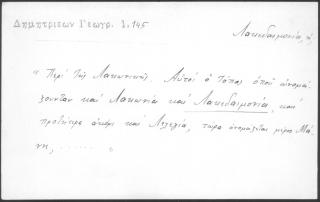 Δημητριέων Γεωγρ. 1, 145
Λακεδαιμονία, ἡ
"Περί τῆς Λακωνικῆς. Αὐτός ὁ τόπος ὁπού ὠνομά
ζουνταν καί Λακωνία καί Λακεδαιμονία, καί
προτίτερα ἀκόμι καί Λελεγία, τώρα ὀνομάζεται μέρος Μά
νη, ......